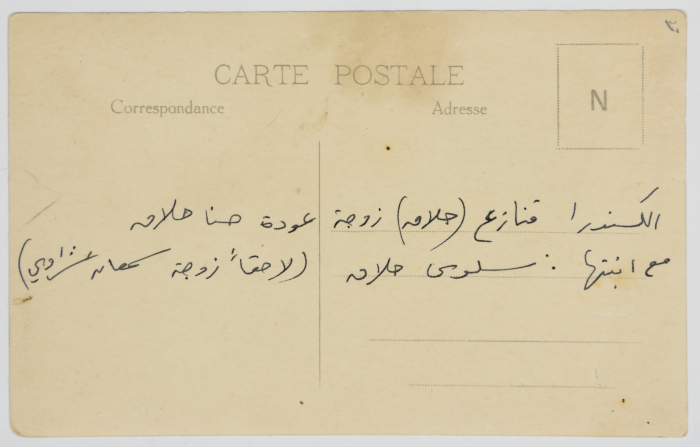 CARTE POSTALE
Correspondance
Adresse
N
الكسندرا قنازع (حلاق) زوجة عودة حنا حلاق
مع ابنتها : سلوى حلاق (لاحقاً زوجة سمعان عشراوي)